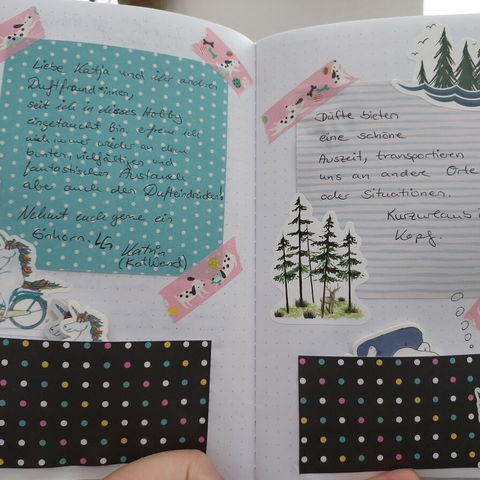 Liebe Katja und ihr anderen
Duftfreund*innen,
seit ich in dieses Hobby
eingetaucht bin, erfreue ich
mich immer wieder an dem
bunten, vielfältigen und
fantastischen Austausch
aber auch den Dufteindrücken!
Nehmt euch gerne ein
Einhorn. LG
Katrin
(KatWend)
Düfte bieten
eine schöne
Auszeit, transportieren
uns an andere Orte
oder Situationen.
Kurzurlaub i
Kopf.